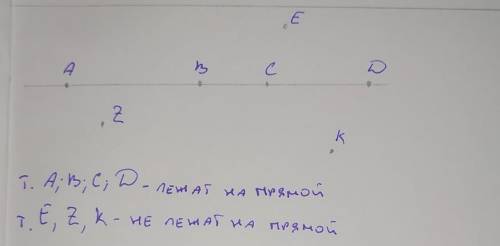 E
A B C D
Z
K
т. A; B; C; D - лежат на прямой
т. E, Z, K - не лежат на прямой